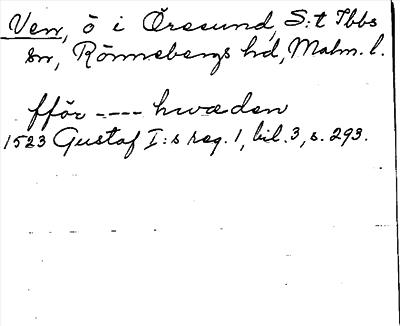 Ven, ö i Öresund, S:t Ibbs
sn, Rönnebergs hd, Malm. l.
fför ---- hwæden
1523 Gustaf I:s reg. 1, bil. 3, s. 293.